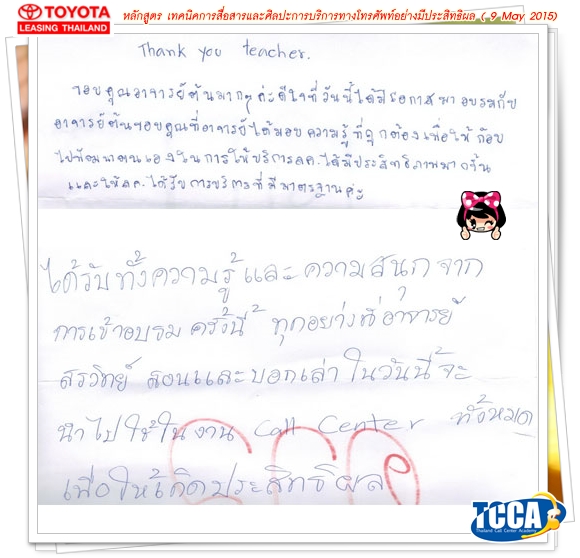 TOYOTA
LEASING THAILAND
หลักสูตร เทคนิคการสื่อสารและศิลปะการบริการทางโทรศัพท์อย่างมีประสิทธิผล ( 9 May 2015)
Thank you teacher.
ขอบคุณอาจารย์ต้นมากๆค่ะดีใจที่วันนี้ได้มีโอกาสมาอบรมกับ
อาจารย์ต้นขอบคุณที่อาจารย์ได้มอบความรู้ที่ถูกต้องเพื่อให้ก้อย
ไปพัฒนาตนเองในการให้บริการลค.ได้มีประสิทธิภาพมากขึ้น
และให้ลค.ได้รับการบริการที่มีมาตรฐานค่ะ
ได้รับทั้งความรู้ และ ความสนุก จาก
การเข้าอบรม ครั้งนี้ ทุกอย่างที่ อาจารย์
สรวิทย์ สอนและบอกเล่า ในวันนี้ จะ
นำไปใช้ในงาน Call Center ทั้งหมด
เพื่อให้เกิดประสิทธิผล
TCCA
Thailand Call Center Academy